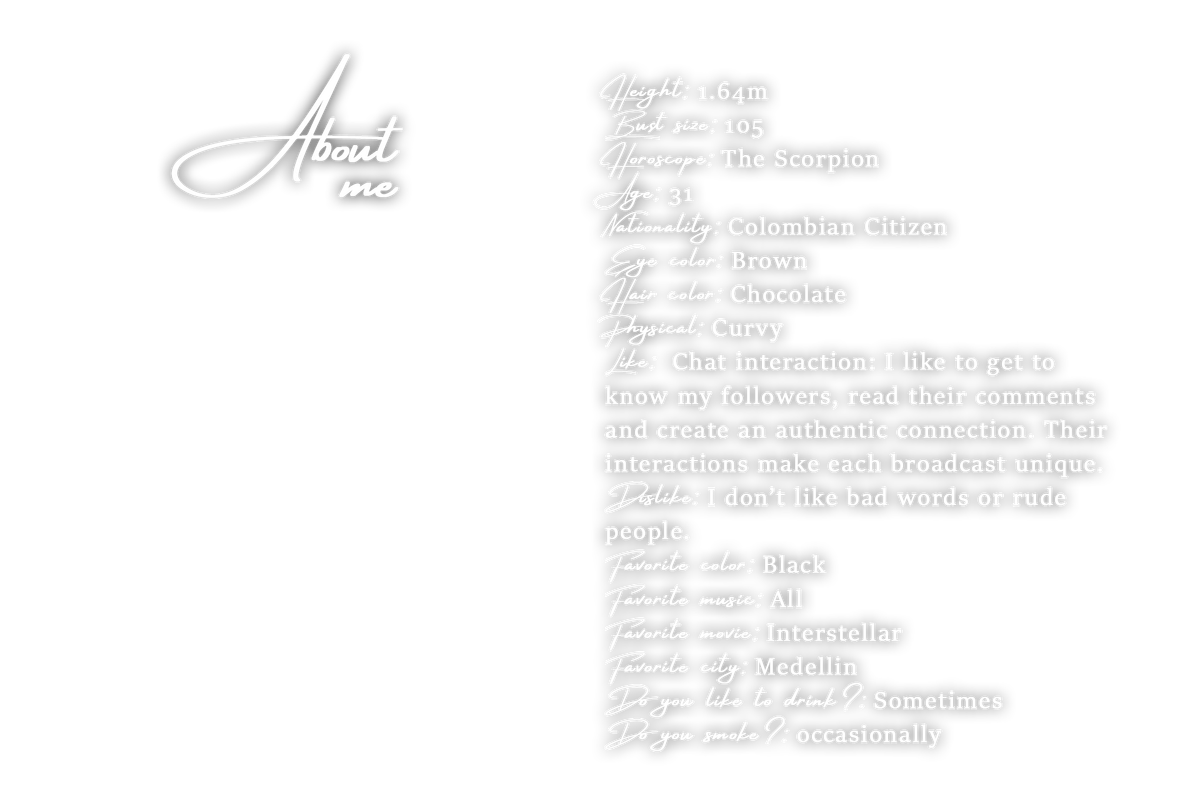 About
me
Height: 1.64m
Bust size: 105
Horoscope: The Scorpion
Age: 31
Nationality: Colombian Citizen
Eye color: Brown
Hair color: Chocolate
Physical: Curvy
Like: Chat interaction: I like to get to
know my followers, read their comments
and create an authentic connection. Their
interactions make each broadcast unique.
Dislike: I don’t like bad words or rude
people.
Favorite color: Black
Favorite music: All
Favorite movie: Interstellar
Favorite city: Medellin
Do you like to drink?: Sometimes
Do you smoke?: occasionally